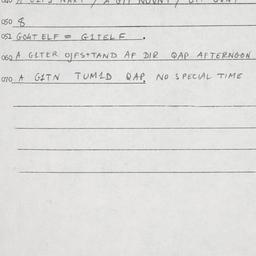 050 8
051 GO4T ELF = G1TELF .
060 A G1TER OJFSTTAND AF DIR QAP AFTERNOON
070 A G1TN TUM1D QAP, NO SPECIAL TIME